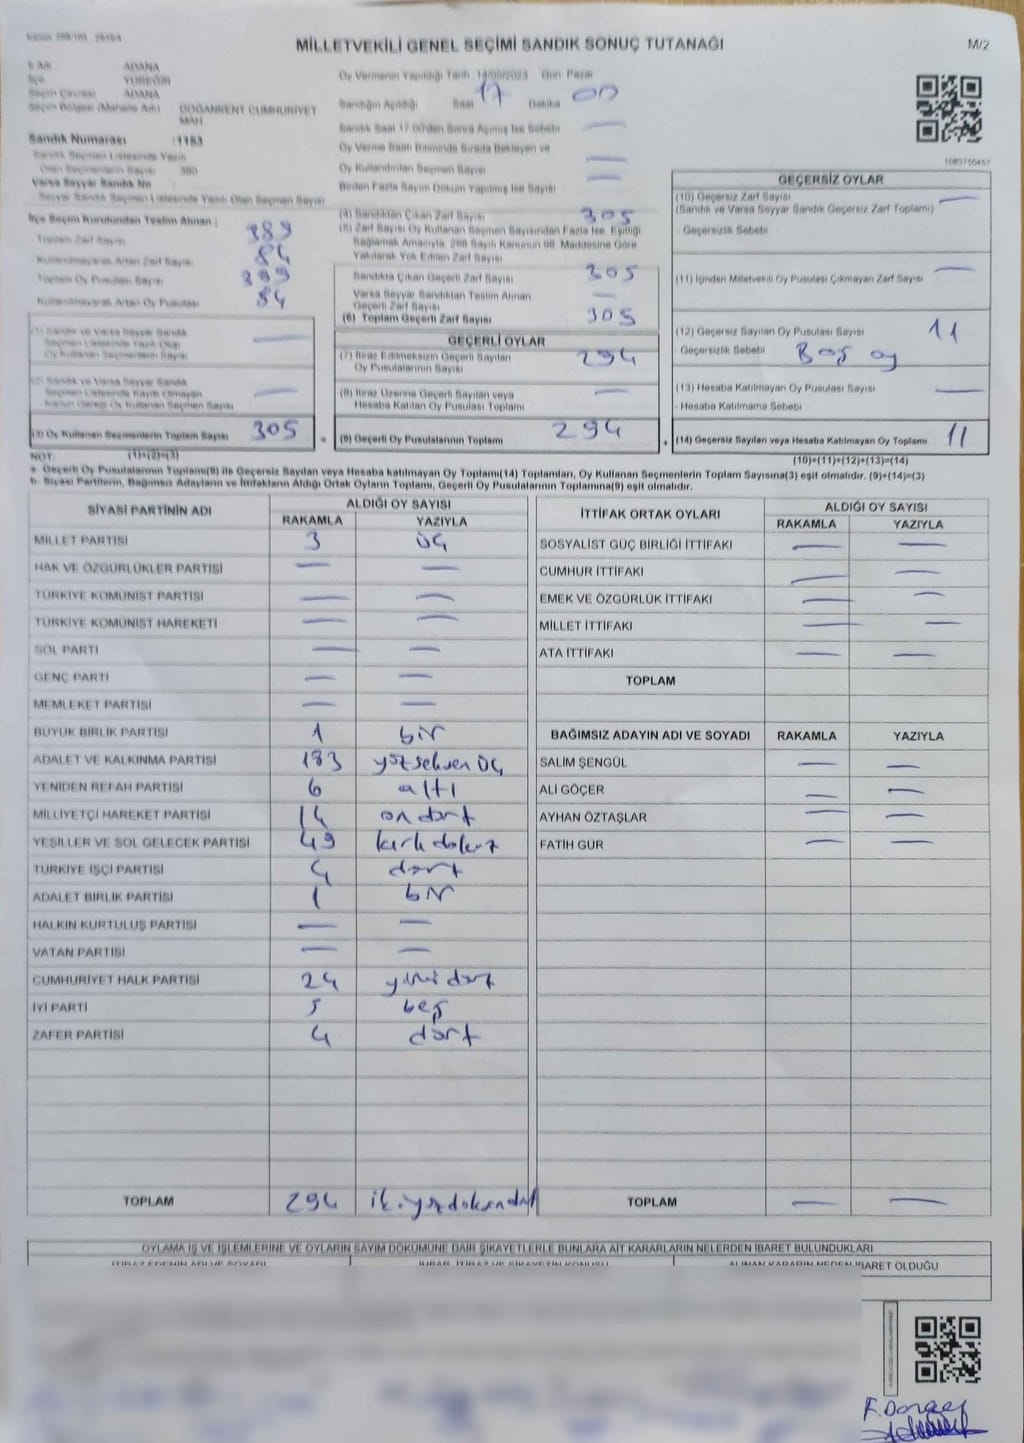 MİLLETVEKİLİ GENEL SEÇİMİ SANDIK SONUÇ TUTANAĞI
M/2
İli Adı ADANA
İlçe YÜREĞİR
Seçim Çevresi ADANA
Seçim Bölgesi (Mahalle Adı) DOĞANKENT CUMHURİYET MAH.
Sandık Numarası : 1183
Sandık Seçmen Listesinde Yazılı
Olan Seçmenlerin Sayısı 380
Varsa Seyyar Sandık No
Seyyar Sandık Seçmen Listesinde Yazılı Olan Seçmen Sayısı
Oy Vermenin Yapıldığı Tarih 14/05/2023 Gün Pazar
Sandığın Açıldığı Saat 17 Dakika 00
Sandık Saat 17:00'den Sonra Açılmış İse Sebebi —
Oy Verme Saati Bitiminde Sırada Bekleyen ve
Oy Kullandırılan Seçmen Sayısı —
Birden Fazla Sayım Döküm Yapılmış İse Sayısı —
1083750457
İlçe Seçim Kurulundan Teslim Alınan :
Toplam Zarf Sayısı 389
Kullanılmayarak Artan Zarf Sayısı 84
Toplam Oy Pusulası Sayısı 389
Kullanılmayarak Artan Oy Pusulası 84
(1) Sandık ve Varsa Seyyar Sandık
Seçmen Listesinde Yazılı Olup
Oy Kullanan Seçmenlerin Sayısı —
(2) Sandık ve Varsa Seyyar Sandık
Seçmen Listesinde Kayıtlı Olmayan
Kanun Gereği Oy Kullanan Seçmen Sayısı —
(3) Oy Kullanan Seçmenlerin Toplam Sayısı 305 =
(4) Sandıktan Çıkan Zarf Sayısı 305
(5) Zarf Sayısı Oy Kullanan Seçmen Sayısından Fazla İse, Eşitliği
Sağlamak Amacıyla, 298 Sayılı Kanunun 98. Maddesine Göre
Yakılarak Yok Edilen Zarf Sayısı
Sandıkta Çıkan Geçerli Zarf Sayısı 305
Varsa Seyyar Sandıktan Teslim Alınan
Geçerli Zarf Sayısı —
(6) Toplam Geçerli Zarf Sayısı 305
GEÇERLİ OYLAR
(7) İtiraz Edilmeksizin Geçerli Sayılan
Oy Pusulalarının Sayısı 294
(8) İtiraz Üzerine Geçerli Sayılan veya
Hesaba Katılan Oy Pusulası Toplamı —
(9) Geçerli Oy Pusulalarının Toplamı 294 +
GEÇERSİZ OYLAR
(10) Geçersiz Zarf Sayısı —
(Sandık ve Varsa Seyyar Sandık Geçersiz Zarf Toplamı)
Geçersizlik Sebebi
(11) İçinden Milletvekili Oy Pusulası Çıkmayan Zarf Sayısı —
(12) Geçersiz Sayılan Oy Pusulası Sayısı 11
Geçersizlik Sebebi Boş oy
(13) Hesaba Katılmayan Oy Pusulası Sayısı —
- Hesaba Katılmama Sebebi
(14) Geçersiz Sayılan veya Hesaba Katılmayan Oy Toplamı 11
NOT: (1)+(2)=(3)
(10)+(11)+(12)+(13)=(14)
a- Geçerli Oy Pusulalarının Toplamı(9) ile Geçersiz Sayılan veya Hesaba katılmayan Oy Toplamı(14) Toplamları, Oy Kullanan Seçmenlerin Toplam Sayısına(3) eşit olmalıdır. (9)+(14)=(3)
b- Siyasi Partilerin, Bağımsız Adayların ve İttifakların Aldığı Ortak Oyların Toplamı, Geçerli Oy Pusulalarının Toplamına(9) eşit olmalıdır.
SİYASİ PARTİNİN ADI ALDIĞI OY SAYISI
RAKAMLA YAZIYLA
MİLLET PARTİSİ 3 üç
HAK VE ÖZGÜRLÜKLER PARTİSİ — —
TÜRKİYE KOMÜNİST PARTİSİ — —
TÜRKİYE KOMÜNİST HAREKETİ — —
SOL PARTİ — —
GENÇ PARTİ — —
MEMLEKET PARTİSİ — —
BÜYÜK BİRLİK PARTİSİ 1 bir
ADALET VE KALKINMA PARTİSİ 183 yüzseksen üç
YENİDEN REFAH PARTİSİ 6 altı
MİLLİYETÇİ HAREKET PARTİSİ 14 on dört
YEŞİLLER VE SOL GELECEK PARTİSİ 49 kırk dokuz
TÜRKİYE İŞÇİ PARTİSİ 4 dört
ADALET BİRLİK PARTİSİ 1 bir
HALKIN KURTULUŞ PARTİSİ — —
VATAN PARTİSİ — —
CUMHURİYET HALK PARTİSİ 24 yirmi dört
İYİ PARTİ 5 beş
ZAFER PARTİSİ 4 dört
TOPLAM 294 ikiyüzdoksandört
İTTİFAK ORTAK OYLARI ALDIĞI OY SAYISI
RAKAMLA YAZIYLA
SOSYALİST GÜÇ BİRLİĞİ İTTİFAKI — —
CUMHUR İTTİFAKI — —
EMEK VE ÖZGÜRLÜK İTTİFAKI — —
MİLLET İTTİFAKI — —
ATA İTTİFAKI — —
TOPLAM
BAĞIMSIZ ADAYIN ADI VE SOYADI RAKAMLA YAZIYLA
SALİM ŞENGÜL — —
ALİ GÖÇER — —
AYHAN ÖZTAŞLAR — —
FATİH GÜR — —
TOPLAM — —
OYLAMA İŞ VE İŞLEMLERİNE VE OYLARIN SAYIM DÖKÜMÜNE DAİR ŞİKAYETLERLE BUNLARA AİT KARARLARIN NELERDEN İBARET BULUNDUKLARI
İTİRAZ EDENİN ADI VE SOYADI İHBAR, İTİRAZ VE ŞİKAYETİN KONUSU ALINAN KARARIN NEDEN İBARET OLDUĞU